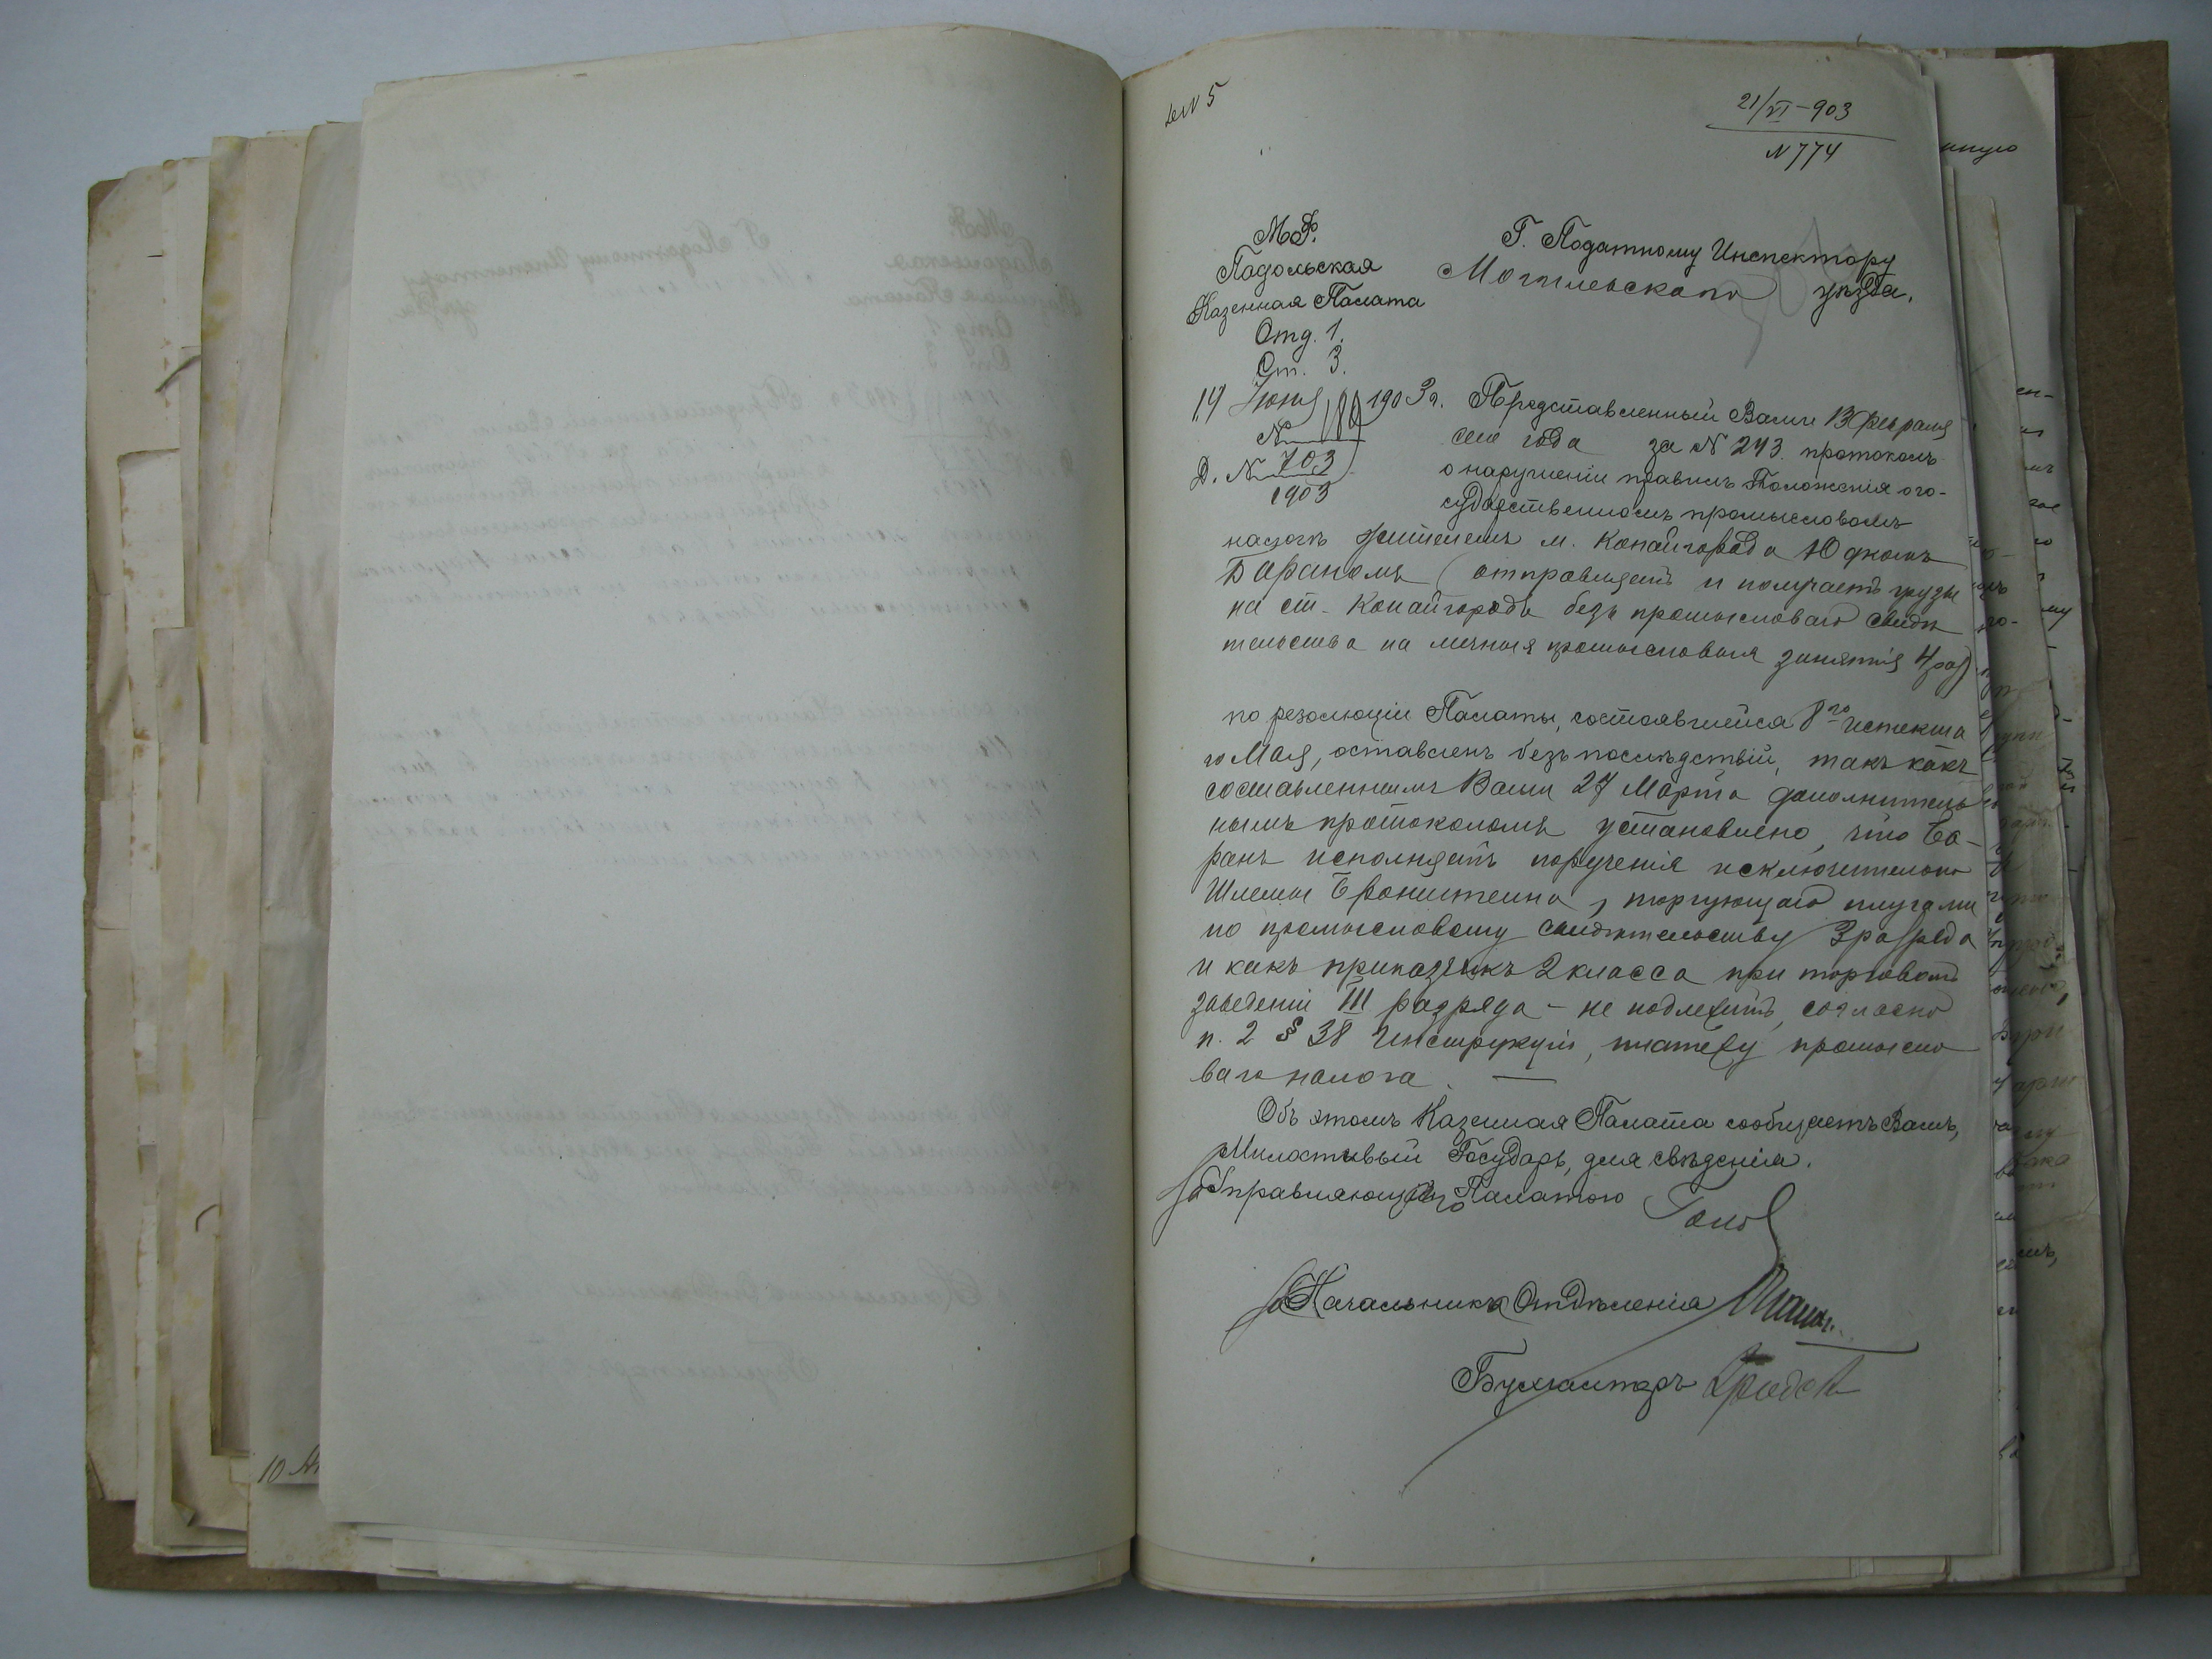 21/VI-903
N 774
М.Ф.
Подольская
Казенная Палата
Отд. 1.
Ст. 3.
14 Іюня 1903 г.
Д. № 703
1903
Г. Податному Инспектору
Могилевскаго уѣзда.
Представленный Вами 13 февраля
сего года за N 243 протоколъ
о нарушеніи правилъ Положенія о го-
сударственномъ промысловомъ
налогѣ жителемъ м. Копайгорода Юдкомъ
Бараномъ (отправляетъ и получаетъ грузы
на ст. Копайгородъ безъ промысловаго свидѣ
тельства на личныя промысловыя занятія 4 раз)
по резолюціи Палаты, состоявшейся 8го истекша
го Мая, оставленъ безъ послѣдствій, такъ какъ
составленнымъ Вами 27 Марта дополнитель
нымъ протоколомъ установлено, что Ба-
ранъ исполняетъ порученія исключительно
Шлемы Бронштейна, торгующаго плугами
по промысловому свидѣтельству 3 разряда
и какъ приказчикъ 2 класса при торговомъ
заведеніи III разряда - не подлежитъ, согласно
п. 2 § 38 Инструкціи, платежу промысло
ваго налога. —
Объ этомъ Казенная Палата сообщаетъ Вамъ,
Милостивый Государь, для свѣдѣнія.
За Управляющаго Палатою
За Начальника Отдѣленія
Бухгалтеръ
10